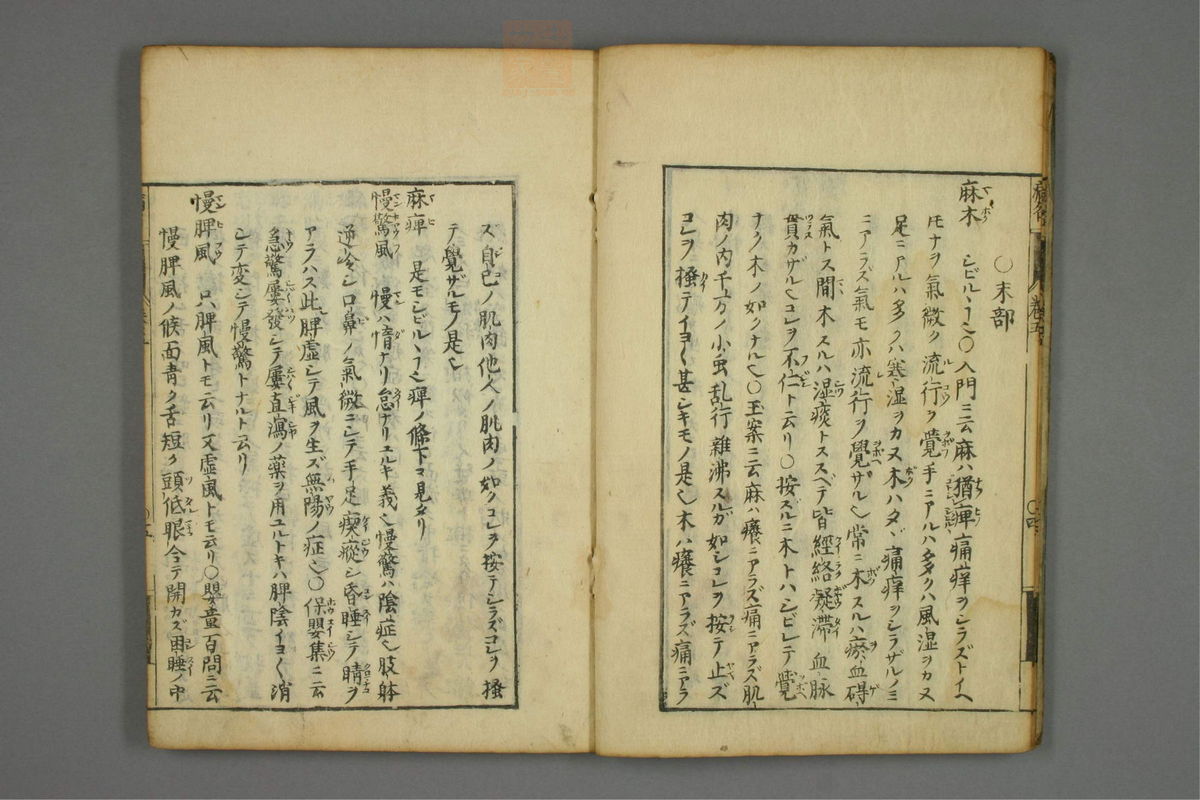 ○末部
麻木 シビルヽ𪜈○入門ニ云麻ハ猶痺痛痒ヲシラズトイヘ
𪜈ナヲ氣微ク流行ヲ覺手ニアルハ多クハ風湿ヲカヌ
足ニアルハ多クハ寒湿ヲカヌ木ハタヾ痛痒ヲシラザルノミ
ニアラズ氣モ亦流行ヲ覺ザル也常ニ木スルハ瘀血碍
氣トス間木スルハ湿痰トススベテ皆經絡凝滞血脉
貫カザル也コレヲ不仁ト云リ○按ズルニ木トハシビレテ覺
ナク木ノ如クナル也○玉案ニ云麻ハ癢ニアラズ痛ニアラズ肌
肉ノ内千万ノ小虫乱行雜沸スルガ如シコレヲ按テ止ズ
コレヲ掻テイヨ〱甚シキモノ是也木ハ癢ニアラズ痛ニアラ
ズ自己ノ肌肉他人ノ肌肉ノ如クコレヲ按テシラズコレヲ掻
テ覺ザルモノ是也
麻痺 是モシビルヽ也痺ノ條下ニ見タリ
慢驚風 慢ハ惰ナリ怠ナリユルキ義也慢驚ハ陰症也肢体
逆冷シ口鼻ノ氣微ニシテ手足瘈瘲シ昏睡シテ睛ヲ
アラハス此脾虚シテ風ヲ生ズ無陽ノ症也○保嬰集ニ云
急驚屢發シテ屢直瀉ノ薬ヲ用ユルトキハ脾陰イヨ〱消
シテ変シテ慢驚トナルト云リ
慢脾風 只脾風トモ云リ又虚風トモ云リ○嬰童百問ニ云
慢脾風ノ候面青ク舌短ク頭低眼合テ開カズ困睡ノ中
巻五